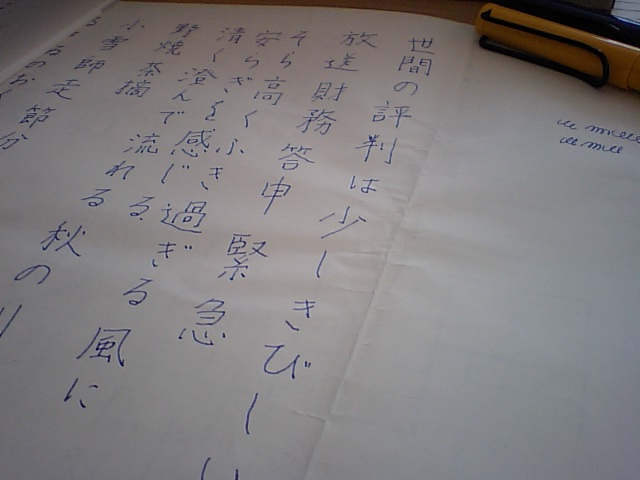 世間の評判は少しきびしい
放送財務答申緊急
そら高くふき過ぎる風に
安らぎを感じる秋の
清く澄んで流れる
野焼茶摘
小雪師走節分